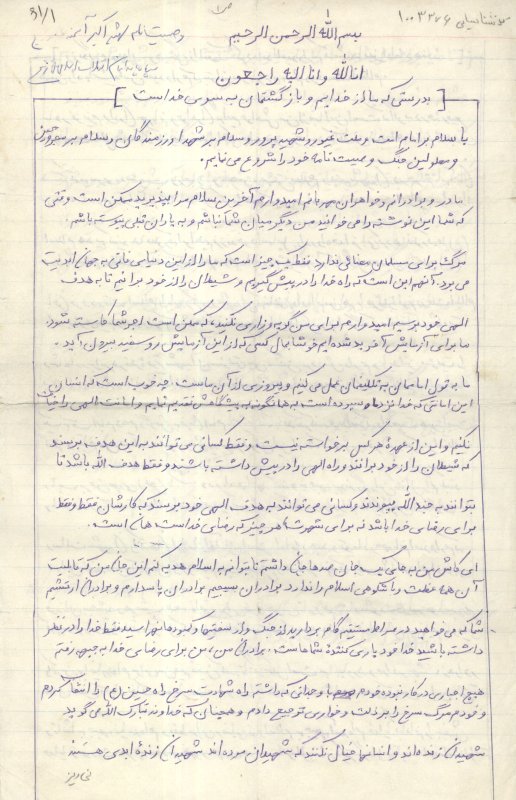 ۳۱/۱
بسم الله الرحمن الرحیم
وصیت نامه شهید اکبر
انا لله و انا الیه راجعون
[بدرستی که ما از خدایم و بازگشتمان به سوی خداست]
با سلام بر امام امت و ملت غیور و شهید پرور و سلام بر شهدا و رزمندگان و سلام بر مجروحین
و معلولین جنگ وصیت نامه خود را شروع می نمایم.
مادر و برادرانم و خواهران مهربانم امیدوارم آخرین سلام مرا بپذیرید ممکن است وقتی
که شما این نوشته را می خوانید من دیگر میان شما نباشم و به یاران قبلی پیوسته باشم.
مرگ برای مسلمان معنائی ندارد فقط یک چیز است که ما را از این دنیای فانی به جهان ابدیت
می برد. آنهم این است که راه خدا را در پیش گیریم و شیطان را از خود برانیم تا به هدف
الهی خود برسیم امیدوارم برای من گریه و زاری نکنید که ممکن است اجر شما کاسته شود.
ما برای آزمایش آفریده شده ایم خوشا بحال کسی که از این آزمایش رو سفید بیرون آید.
ما به قول اماممان به تکلیفمان عمل می کنیم و پیروزی از آن ماست. چه خوب است که انسان
این امانتی که خدا نزد ما سپرده است به همانگونه به پیشگاهش تقدیم نمایم و امانت الهی را خیانت
نکنیم و این از عهده هر کس برخواسته نیست و فقط کسانی می توانند به این هدف برسند
که شیطان را از خود برانند و راه الهی را در پیش داشته باشند و فقط هدف الله باشد تا
بتوانند به جندالله بپیوندند و کسانی می توانند به هدف الهی خود برسند که کارشان فقط و فقط
برای رضای خدا باشد نه برای شهرت هر چیز که رضای خداست همان است.
ای کاش من به جای یک جان صدها جان داشتم تا بتوانم به اسلام هدیه کنم این جان من که قابلیت
آن همه عظمت و با شکوهی اسلام را ندارد برادران بسیجیم برادران پاسدارم و برادران ارتشیم
شما که می خواهید در صراط مستقیم گام بردارید از جنگ و از سختیها و کمبودها نهراسید فقط خدا را در نظر
داشته باشید خدا خود یاری کننده شماهاست. برادران من، من برای رضای خدا به جبهه رفتم
هیچ اجباری در کار نبوده خودم با وجدانی که داشتم راه شهادت سرخ راه حسین (ع) را انتخاب کردم
و خودم مرگ سرخ را بر ذلت و خواری ترجیح دادم و همچنان که خداوند تبارک الله می گوید
شهیدان زنده اند و انسانها خیال نکنند که شهیدان مرده اند شهیدان زنده ابدی هستند